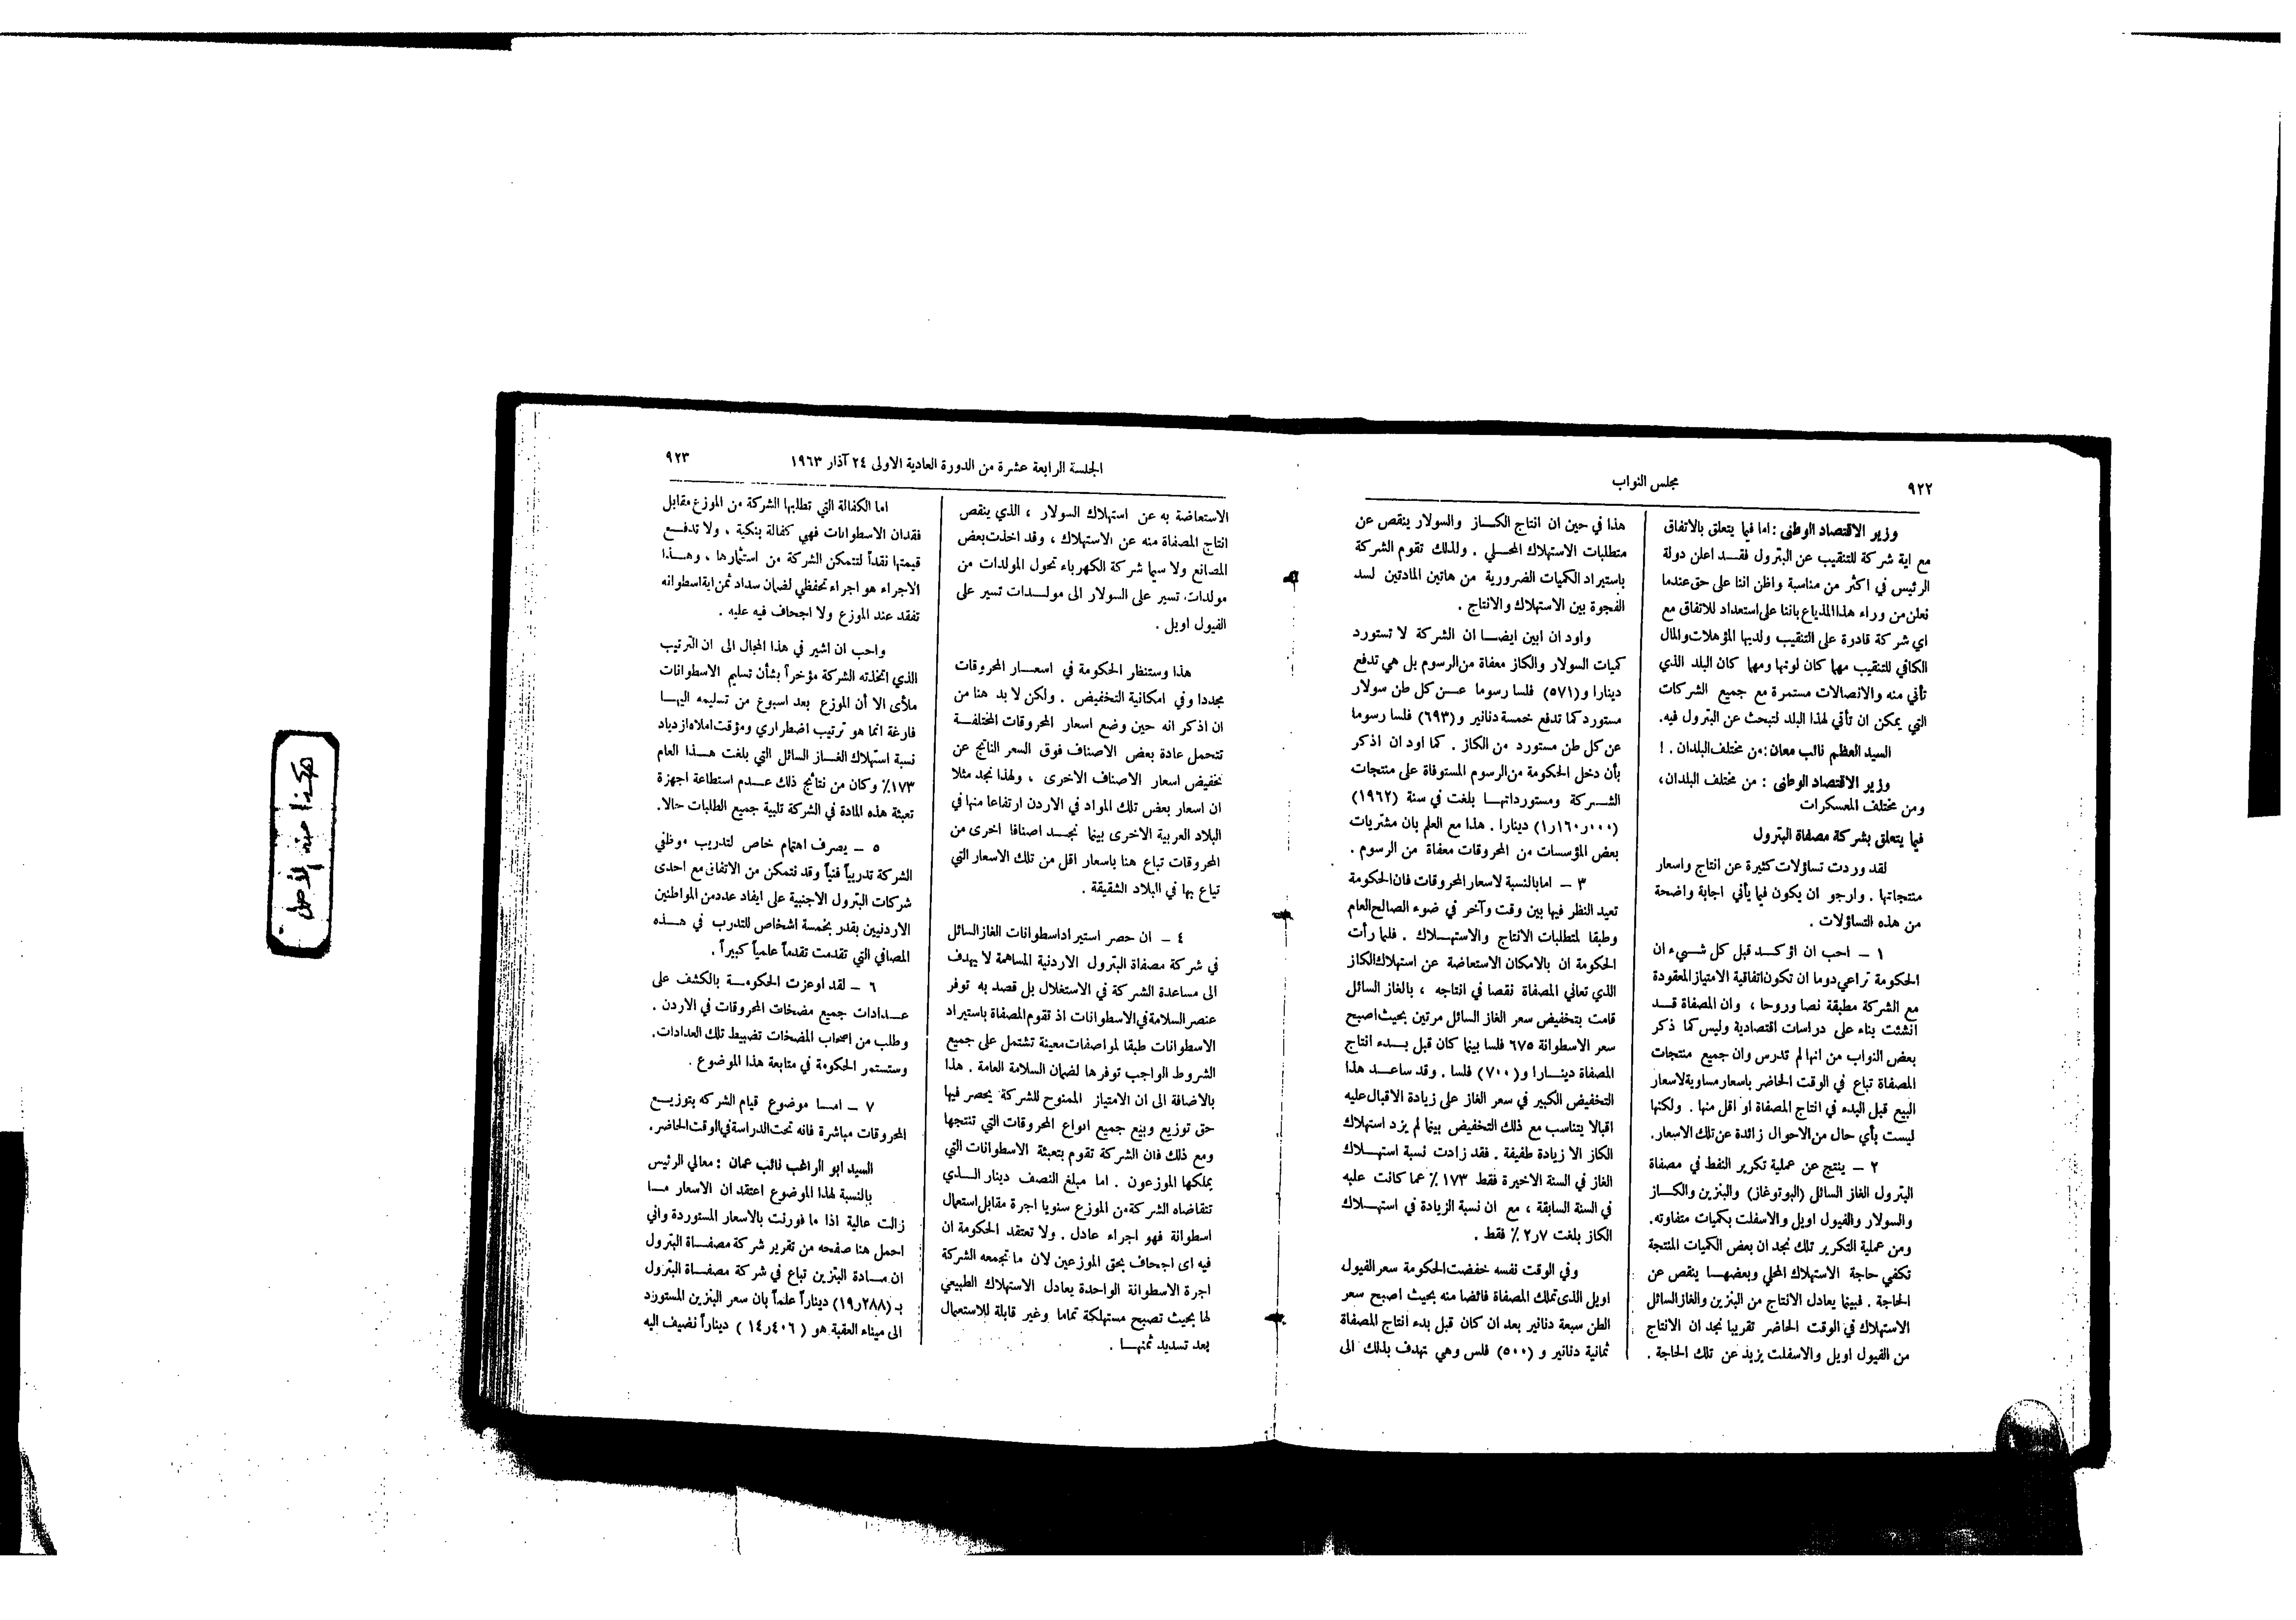 ٩٢٢
مجلس النواب
وزير الاقتصاد الوطنى : اما فيما يتعلق بالاتفاق
مع اية شركة للتنقيب عن البترول فقـــد اعلن دولة
الرئيس في اكثر من مناسبة واظن اننا على حق عندما
نعلن من وراء هذا المذياع باننا على استعداد للاتفاق مع
اي شركة قادرة على التنقيب ولديها المؤهلات والمال
الكافي للتنقيب مهما كان لونها ومهما كان البلد الذي
تأتي منه والاتصالات مستمرة مع جميع الشركات
التي يمكن ان تأتي لهذا البلد لتبحث عن البترول فيه.
السيد العظم نائب معان : من مختلف البلدان . !
وزير الاقتصاد الوطنى : من مختلف البلدان ،
ومن مختلف المعسكرات
فيما يتعلق بشركة مصفاة البترول
لقد وردت تساؤلات كثيرة عن انتاج واسعار
منتجاتها . وارجو ان يكون فيما يأتي اجابة واضحة
من هذه التساؤلات .
١ – احب ان اؤكـــد قبل كل شـــيء ان
الحكومة تراعي دوما ان تكون اتفاقية الامتياز المعقودة
مع الشركة مطبقة نصا وروحا ، وان المصفاة قـــد
انشئت بناء على دراسات اقتصادية وليس كما ذكر
بعض النواب من انها لم تدرس وان جميع منتجات
المصفاة تباع في الوقت الحاضر باسعار مساوية لاسعار
البيع قبل البدء في انتاج المصفاة او اقل منها . ولكنها
ليست بأي حال من الاحوال زائدة عن تلك الاسعار.
٢ – ينتج عن عملية تكرير النفط في مصفاة
البترول الغاز السائل (البوتوغاز) والبنزين والكـــاز
والسولار والفيول اويل والاسفلت بكميات متفاوته.
ومن عملية التكرير تلك نجد ان بعض الكميات المنتجة
تكفي حاجة الاستهلاك المحلي وبعضهـــا ينقص عن
الحاجة . فبينما يعادل الانتاج من البنزين والغاز السائل
الاستهلاك في الوقت الحاضر تقريبا نجد ان الانتاج
من الفيول اويل والاسفلت يزيد عن تلك الحاجة .
هذا في حين ان انتاج الكـــاز والسولار ينقص عن
متطلبات الاستهلاك المحـــلي . ولذلك تقوم الشركة
باستيراد الكميات الضرورية من هاتين المادتين لسد
الفجوة بين الاستهلاك والانتاج .
واود ان ابين ايضـــا ان الشركة لا تستورد
كميات السولار والكاز معفاة من الرسوم بل هي تدفع
دينارا و(٥٧١) فلسا رسوما عـــن كل طن سولار
مستورد كما تدفع خمسة دنانير و(٦٩٣) فلسا رسوما
عن كل طن مستورد من الكاز . كما اود ان اذكر
بأن دخل الحكومة من الرسوم المستوفاة على منتجات
الشـــركة ومستورداتهـــا بلغت في سنة (١٩٦٢)
(١٫١٦٠٫٠٠٠) دينارا . هذا مع العلم بان مشتريات
بعض المؤسسات من المحروقات معفاة من الرسوم .
٣ – اما بالنسبة لاسعار المحروقات فان الحكومة
تعيد النظر فيها بين وقت وآخر في ضوء الصالح العام
وطبقا لمتطلبات الانتاج والاستهـــلاك . فلما رأت
الحكومة ان بالامكان الاستعاضة عن استهلاك الكاز
الذي تعاني المصفاة نقصا في انتاجه ، بالغاز السائل
قامت بتخفيض سعر الغاز السائل مرتين بحيث اصبح
سعر الاسطوانة ٦٧٥ فلسا بينما كان قبل بـــدء انتاج
المصفاة دينـــارا و(٧٠٠) فلسا . وقد ساعـــد هذا
التخفيض الكبير في سعر الغاز على زيادة الاقبال عليه
اقبالا يتناسب مع ذلك التخفيض بينما لم يزد استهلاك
الكاز الا زيادة طفيفة . فقد زادت نسبة استهـــلاك
الغاز في السنة الاخيرة فقط ١٧٣ ٪ عما كانت عليه
في السنة السابقة ، مع ان نسبة الزيادة في استهـــلاك
الكاز بلغت ٧ر٢ ٪ فقط .
وفي الوقت نفسه خفضت الحكومة سعر الفيول
اويل الذى تملك المصفاة فائضا منه بحيث اصبح سعر
الطن سبعة دنانير بعد ان كان قبل بدء انتاج المصفاة
ثمانية دنانير و (٥٠٠) فلس وهي تهدف بذلك الى
الجلسة الرابعة عشرة من الدورة العادية الاولى ٢٤ آذار ١٩٦٣
٩٢٣
الاستعاضة به عن استهلاك السولار ، الذي ينقص
انتاج المصفاة منه عن الاستهلاك ، وقد اخذت بعض
المصانع ولا سيما شركة الكهرباء تحول المولدات من
مولدات تسير على السولار الى مولـــدات تسير على
الفيول اويل .
هذا وستنظر الحكومة في اسعـــار المحروقات
مجددا وفي امكانية التخفيض . ولكن لا بد هنا من
ان اذكر انه حين وضع اسعار المحروقات المختلفـــة
تتحمل عادة بعض الاصناف فوق السعر الناتج عن
تخفيض اسعار الاصناف الاخرى ، ولهذا نجد مثلا
ان اسعار بعض تلك المواد في الاردن ارتفاعا منها في
البلاد العربية الاخرى بينما نجـــد اصنافا اخرى من
المحروقات تباع هنا باسعار اقل من تلك الاسعار التي
تباع بها في البلاد الشقيقة .
٤ – ان حصر استيراد اسطوانات الغاز السائل
في شركة مصفاة البترول الاردنية المساهمة لا يهدف
الى مساعدة الشركة في الاستغلال بل قصد به توفر
عنصر السلامة في الاسطوانات اذ تقوم المصفاة باستيراد
الاسطوانات طبقا لمواصفات معينة تشتمل على جميع
الشروط الواجب توفرها لضمان السلامة العامة . هذا
بالاضافة الى ان الامتياز الممنوح للشركة يحصر فيها
حق توزيع وبيع جميع انواع المحروقات التي تنتجها
ومع ذلك فان الشركة تقوم بتعبئة الاسطوانات التي
يملكها الموزعون . اما مبلغ النصف دينار الـــذي
تتقاضاه الشركة من الموزع سنويا اجرة مقابل استعمال
اسطوانة فهو اجراء عادل . ولا تعتقد الحكومة ان
فيه اى اجحاف بحق الموزعين لان ما تجمعه الشركة
اجرة الاسطوانة الواحدة يعادل الاستهلاك الطبيعي
لها بحيث تصبح مستهلكة تماما وغير قابلة للاستعمال
بعد تسديد ثمنهـــا .
اما الكفالة التي تطلبها الشركة من الموزع مقابل
فقدان الاسطوانات فهي كفالة بنكية . ولا تدفـــع
قيمتها نقداً لتتمكن الشركة من استثمارها . وهـــذا
الاجراء هو اجراء تحفظي لضمان سداد ثمن اية اسطوانه
تفقد عند الموزع ولا اجحاف فيه عليه .
واحب ان اشير في هذا المجال الى ان الترتيب
الذي اتخذته الشركة مؤخراً بشأن تسليم الاسطوانات
ملأى الا أن الموزع بعد اسبوع من تسليمه اليهـــا
فارغة انما هو ترتيب اضطراري ومؤقت املاه ازدياد
نسبة استهلاك الغـــاز السائل التي بلغت هـــذا العام
١٧٣٪ وكان من نتائج ذلك عـــدم استطاعة اجهزة
تعبئة هذه المادة في الشركة تلبية جميع الطلبات حالا.
٥ – يصرف اهتمام خاص لتدريب موظفي
الشركة تدريباً فنياً وقد نتمكن من الاتفاق مع احدى
شركات البترول الاجنبية على ايفاد عدد من المواطنين
الاردنيين بقدر بخمسة اشخاص للتدرب في هـــذه
المصافي التي تقدمت تقدماً علمياً كبيراً .
٦ – لقد اوعزت الحكومـــة بالكشف على
عـــدادات جميع مضخات المحروقات في الاردن .
وطلب من اصحاب المضخات تضبيط تلك العدادات.
وستستمر الحكومة في متابعة هذا الموضوع .
٧ – امـــا موضوع قيام الشركه بتوزيـــع
المحروقات مباشرة فانه تحت الدراسة في الوقت الحاضر.
السيد ابو الراغب نائب عمان : معالي الرئيس
بالنسبة لهذا الموضوع اعتقد ان الاسعار مـــا
زالت عالية اذا ما قورنت بالاسعار المستوردة واني
احمل هنا صفحه من تقرير شركة مصفـــاة البترول
ان مـــادة البنزين تباع في شركة مصفـــاة البترول
بـ (٢٨٨ر١٩) ديناراً علماً بان سعر البنزين المستورد
الى ميناء العقبة هو ( ٤٠٦ر١٤ ) ديناراً نضيف اليه
هكذا من الأصل